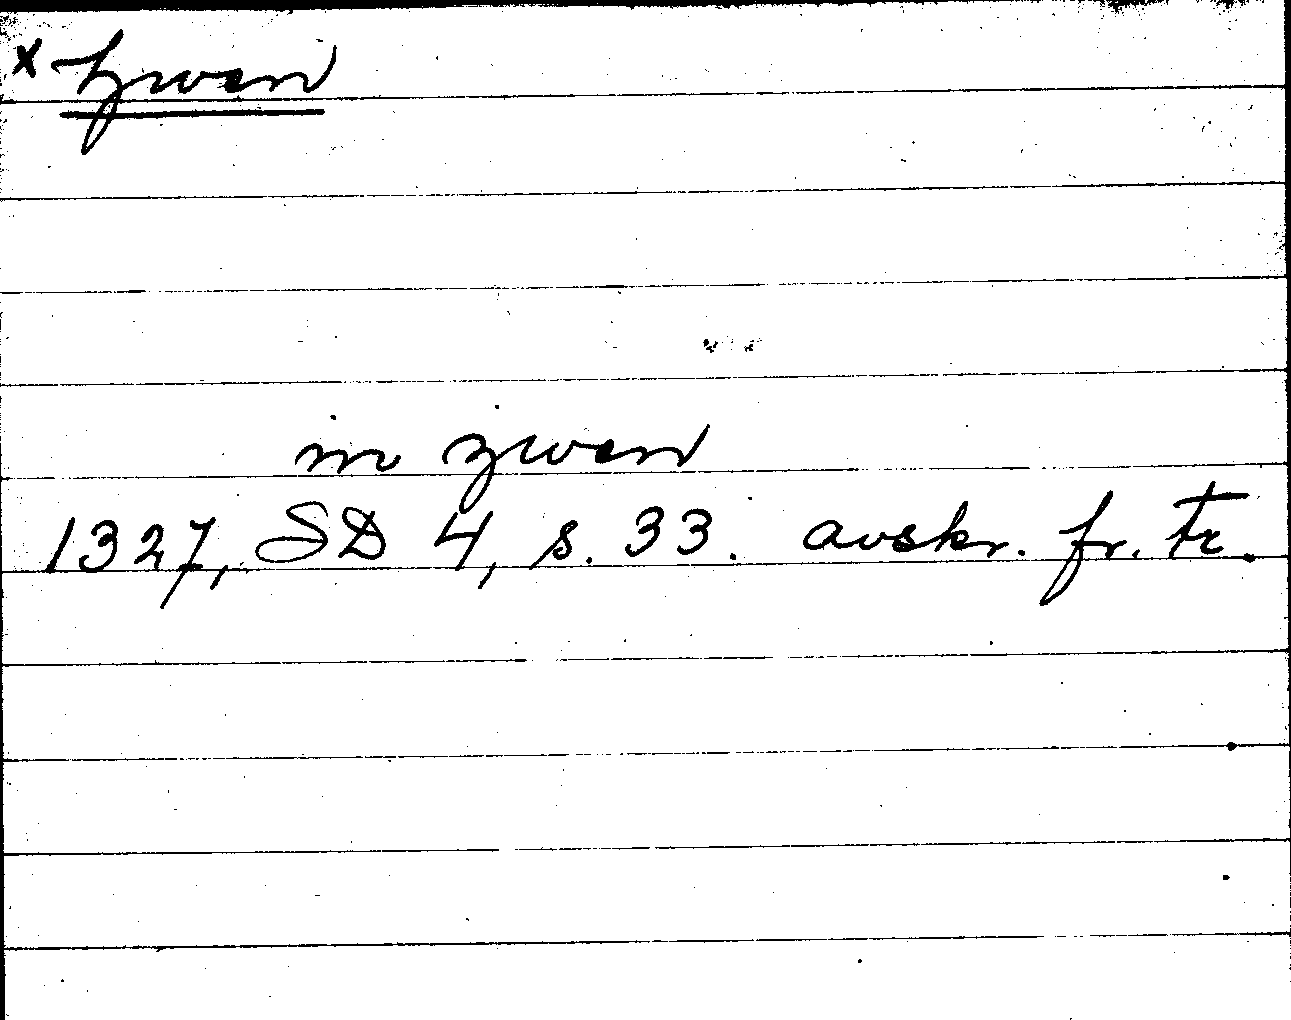 x Zwen
in zwen
1327, SD 4, s. 33. avskr. fr. Fr.